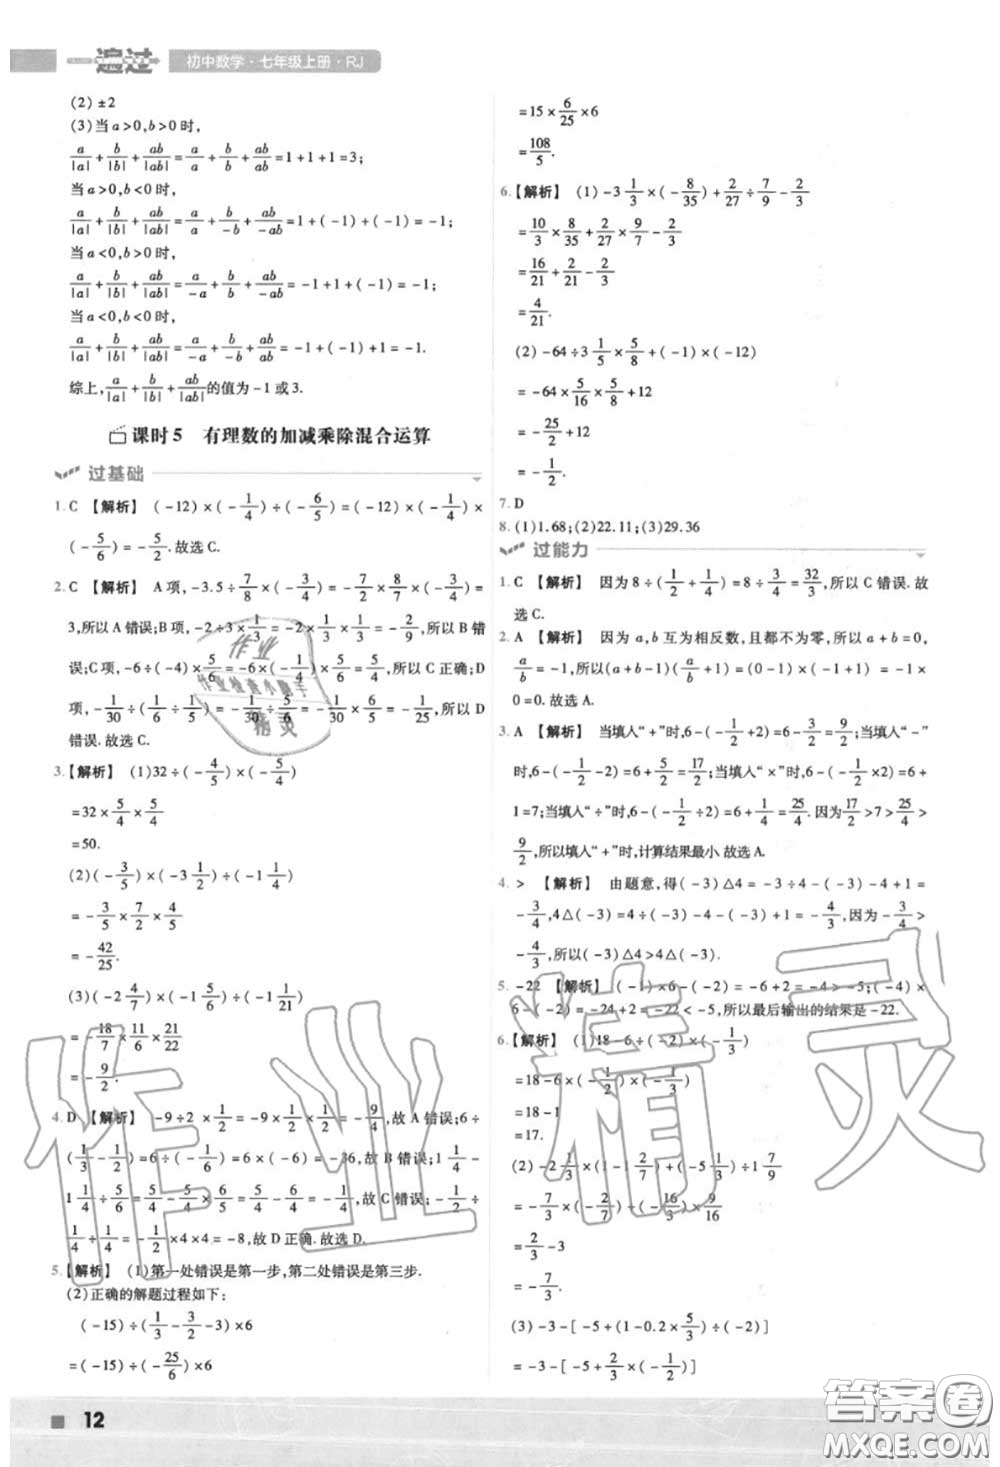 一遍过 初中数学·七年级上册·RJ
(2) ±2
(3)当 a>0,b>0 时,
a/|a| + b/|b| + ab/|ab| = a/a + b/b + ab/ab = 1+1+1=3;
当 a>0,b<0 时,
a/|a| + b/|b| + ab/|ab| = a/a + b/-b + ab/-ab = 1+(-1)+(-1)=-1;
当 a<0,b>0 时,
a/|a| + b/|b| + ab/|ab| = a/-a + b/b + ab/-ab = -1+1+(-1)=-1;
当 a<0,b<0 时,
a/|a| + b/|b| + ab/|ab| = a/-a + b/-b + ab/ab = -1+(-1)+1=-1.
综上, a/|a| + b/|b| + ab/|ab| 的值为 -1 或 3.
课时5 有理数的加减乘除混合运算
过基础
1. C 【解析】 (-12)×(-1/4)÷(-6/5)=(-12)×(-1/4)×
(-5/6)=-5/2.故选 C.
2. C 【解析】 A 项,-3.5÷7/8×(-3/4)=-7/2×8/7×(-3/4)=
3,所以 A 错误;B 项,-2÷3×1/3=-2×1/3×1/3=-2/9,所以 B 错
误;C 项,-6÷(-4)×5/6=-6×(-1/4)×5/6,所以 C 正确;D
项,-1/30÷(1/6÷1/5)=-1/30÷5/6=-1/30×6/5=-1/25,所以 D
错误.故选 C.
3.【解析】 (1)32÷(-4/5)×(-5/4)
=32×5/4×5/4
=50.
(2)(-3/5)×(-3 1/2)÷(-1 1/4)
=-3/5×7/2×4/5
=-42/25.
(3)(-2 4/7)×(-1 5/6)÷(-1 1/21)
=-18/7×11/6×21/22
=-9/2.
4. D 【解析】 -9÷2×1/2=-9×1/2×1/2=-9/4,故 A 错误;6÷
(1/3-1/2)=6÷(-1/6)=6×(-6)=-36,故 B 错误;1 1/4-
1 1/4×5/6=5/4-5/4×5/6=5/4-25/24=5/24,故 C 错误;-1/2÷
1/4÷1/4=-1/2×4×4=-8,故 D 正确.故选 D.
5.【解析】 (1)第一处错误是第一步,第二处错误是第三步.
(2)正确的解题过程如下:
(-15)÷(1/3-3/2-3)×6
=(-15)÷(-25/6)×6
=15×6/25×6
=108/5.
6.【解析】 (1)-3 1/3×(-8/35)+2/27÷7/9-2/3
=10/3×8/35+2/27×9/7-2/3
=16/21+2/21-2/3
=4/21.
(2)-64÷3 1/5×5/8+(-1)×(-12)
=-64×5/16×5/8+12
=-25/2+12
=-1/2.
7. D
8. (1)1.68;(2)22.11;(3)29.36
过能力
1. C 【解析】 因为 8÷(1/2+1/4)=8÷3/4=32/3,所以 C 错误.故
选 C.
2. A 【解析】 因为 a,b 互为相反数,且都不为零,所以 a+b=0,
a/b=-1,所以(a+b-1)(a/b+1)=(0-1)×(-1+1)=-1×
0=0.故选 A.
3. A 【解析】 当填入“+”时,6-(-1/2+2)=6-3/2=9/2;当填入“-”
时,6-(-1/2-2)=6+5/2=17/2;当填入“×”时,6-(-1/2×2)=6+
1=7;当填入“÷”时,6-(-1/2÷2)=6+1/4=25/4.因为17/2>7>25/4>
9/2,所以填入“+”时,计算结果最小.故选 A.
4. > 【解析】 由题意,得(-3)△4=-3÷4-(-3)-4+1=
-3/4,4△(-3)=4÷(-3)-4-(-3)+1=-4/3,因为-3/4>
-4/3,所以(-3)△4>4△(-3).
5. -22 【解析】 (-1)×6-(-2)=-6+2=-4>-5;(-4)×
6-(-2)=-24+2=-22<-5,所以最后输出的结果是-22.
6.【解析】 (1)18-6÷(-2)×(-1/3)
=18-6×(-1/2)×(-1/3)
=18-1
=17.
(2)-2 1/3×(1-1 2/7)+(-5 1/3)÷1 7/9
=-7/3×(-2/7)+(-16/3)×9/16
=2/3-3
=-7/3.
(3)-3-[-5+(1-0.2×5/3)÷(-2)]
=-3-[-5+2/3×(-1/2)]
作业
作业检查小助手
精灵
作业精灵
12
答案圈
MXQE.COM